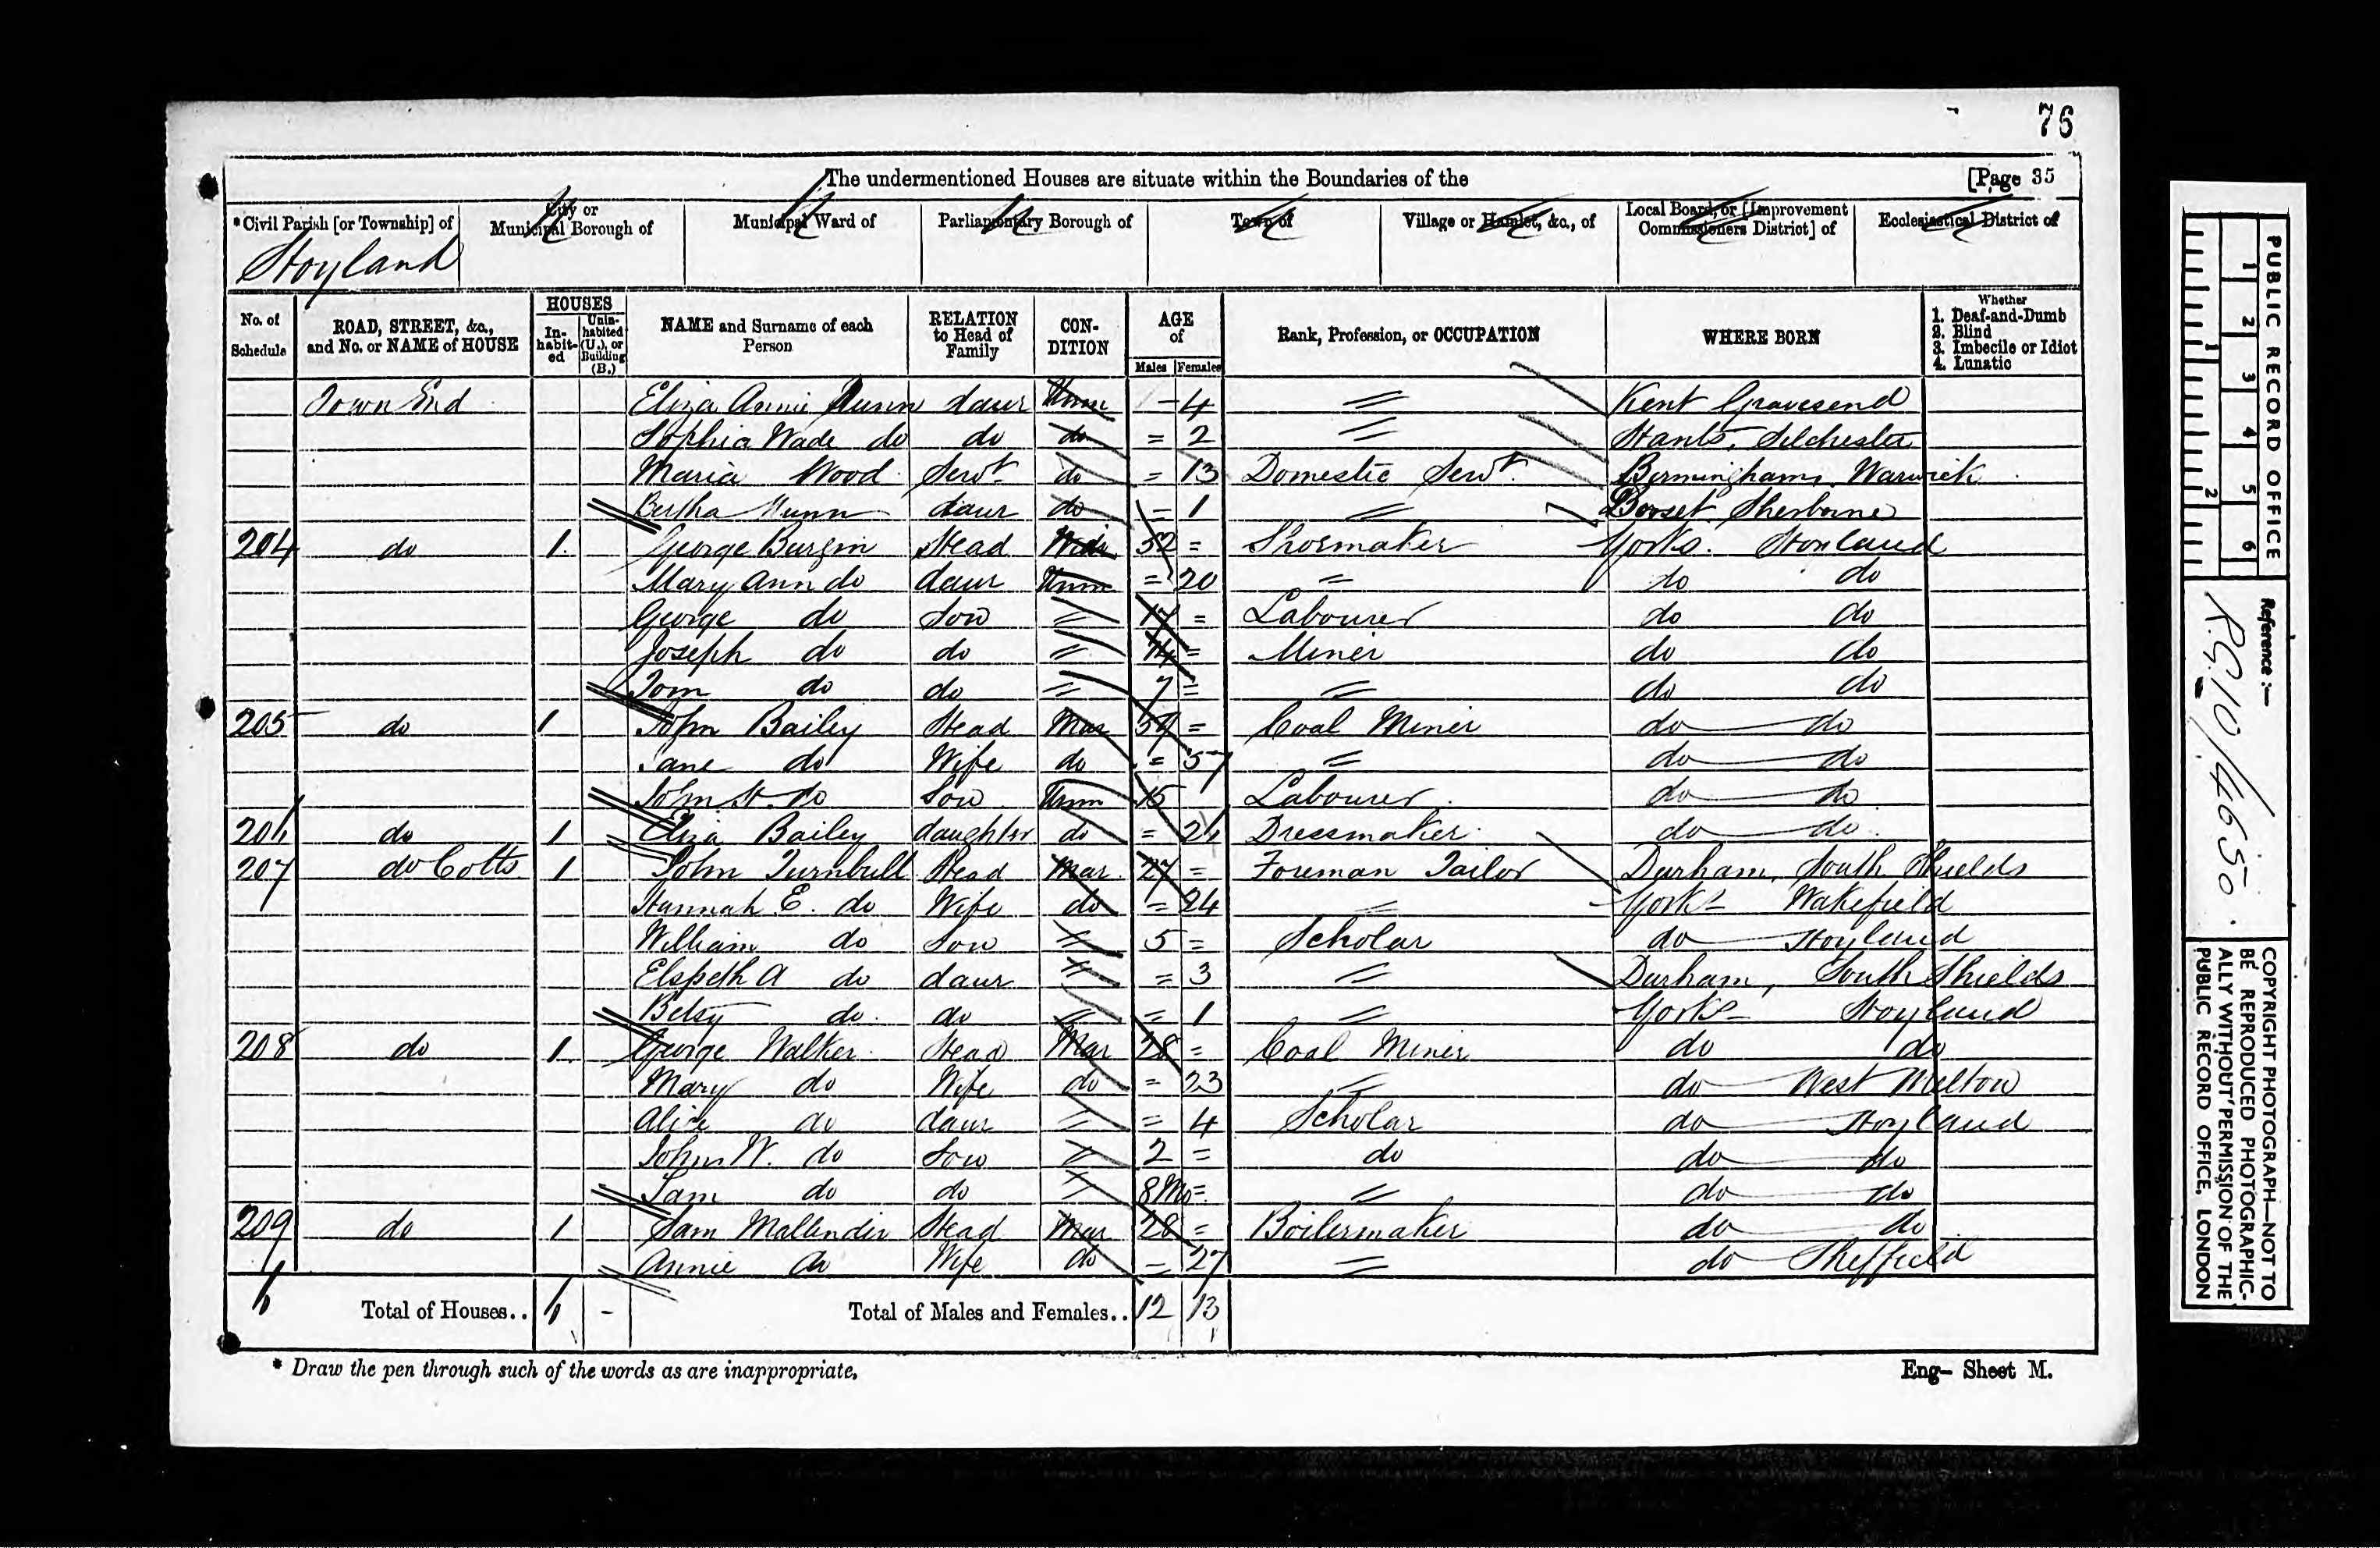 76
The undermentioned Houses are situate within the Boundaries of the [Page 35
*Civil Parish [or Township] of City or Municipal Borough of Municipal Ward of Parliamentary Borough of Town of Village or Hamlet, &c., of Local Board, or [Improvement Commissioners District] of Ecclesiastical District of
Hoyland
No. of Schedule ROAD, STREET, &c., and No. or NAME of HOUSE HOUSES In-habit-ed Unin-habited (U.), or Building (B.) NAME and Surname of each Person RELATION to Head of Family CON-DITION AGE of Males Females Rank, Profession, or OCCUPATION WHERE BORN Whether 1. Deaf-and-Dumb 2. Blind 3. Imbecile or Idiot 4. Lunatic
Town End Eliza Annie Nunn daur Unm - 4 = Kent Gravesend
Sophia Wade do do do = 2 = Hants, Silchester
Maria Wood Servt do = 13 Domestic Servt. Birmingham, Warwick
Bertha Nunn daur do - 1 = Dorset, Sherborne
204 do 1 George Burgin Head Widr 52 = Shoemaker Yorks. Hoyland
Mary Ann do daur Unm = 20 = do do
George do Son = 17 = Labourer do do
Joseph do do = 14 = Miner do do
Tom do do = 7 = = do do
205 do 1 John Bailey Head Mar 59 = Coal Miner do do
Jane do Wife do = 57 = do do
John H. do Son Unm 15 Labourer do do
206 do 1 Eliza Bailey daughter do = Dressmaker do do
207 do Cotts 1 John Turnbull Head Mar 27 = Foreman Tailor Durham, South Shields
Hannah E. do Wife do = 24 = Yorks Wakefield
William do Son = 5 = Scholar do Hoyland
Elspeth A do daur = = 3 = Durham, South Shields
Betsy do do = = 1 = Yorks Hoyland
208 do 1 George Walker Head Mar 28 = Coal Miner do do
Mary do Wife do = 23 = do West Melton
Alice do daur = = 4 Scholar do Hoyland
John W. do Son = 2 = do do do
Sam do do = 8 Mo = = do do
209 do 1 Sam Mallinder Head Mar 28 = Boilermaker do do
Annie do Wife do - 27 = do Sheffield
6 Total of Houses.. 6 - Total of Males and Females.. 12 13
* Draw the pen through such of the words as are inappropriate. Eng- Sheet M.
PUBLIC RECORD OFFICE
1 2 3 4 5 6
1 2
Reference :-
R.G. 10/4650
COPYRIGHT PHOTOGRAPH—NOT TO
BE REPRODUCED PHOTOGRAPHIC-
ALLY WITHOUT PERMISSION OF THE
PUBLIC RECORD OFFICE, LONDON